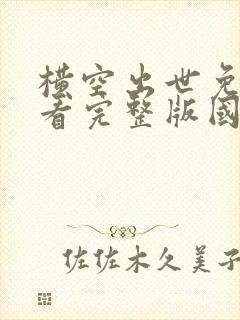 横空出世免
看完整版国
佐佐木久美子